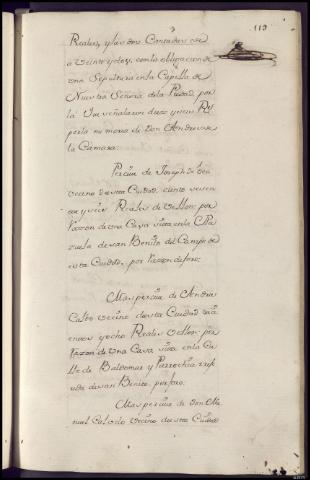 119
Reales, y las dos Cantadas de
a veinte y dos, con la obligacion de
una Sepultura en la Capilla de
Nuestra Señora de la Piedad, por
la
por la mi mano de Don Andres de
la Camara.
Percive de Joseph
vecino de esta Ciudad, ciento
y seis Reales de Vellon por
razon de una Casa sita en la
zuela de san Benito del Campo de
esta Ciudad, por razon de foro.
Mas percive de Andres
Calvo vecino de esta Ciudad
y ocho Reales Vellon por
razon de una Casa sita en la Ca
lle de Baldomar y Parrochia
de san Benito, por foro.
Mas percive de Don Ma
nuel Calvelo Vecino de esta Ciudad